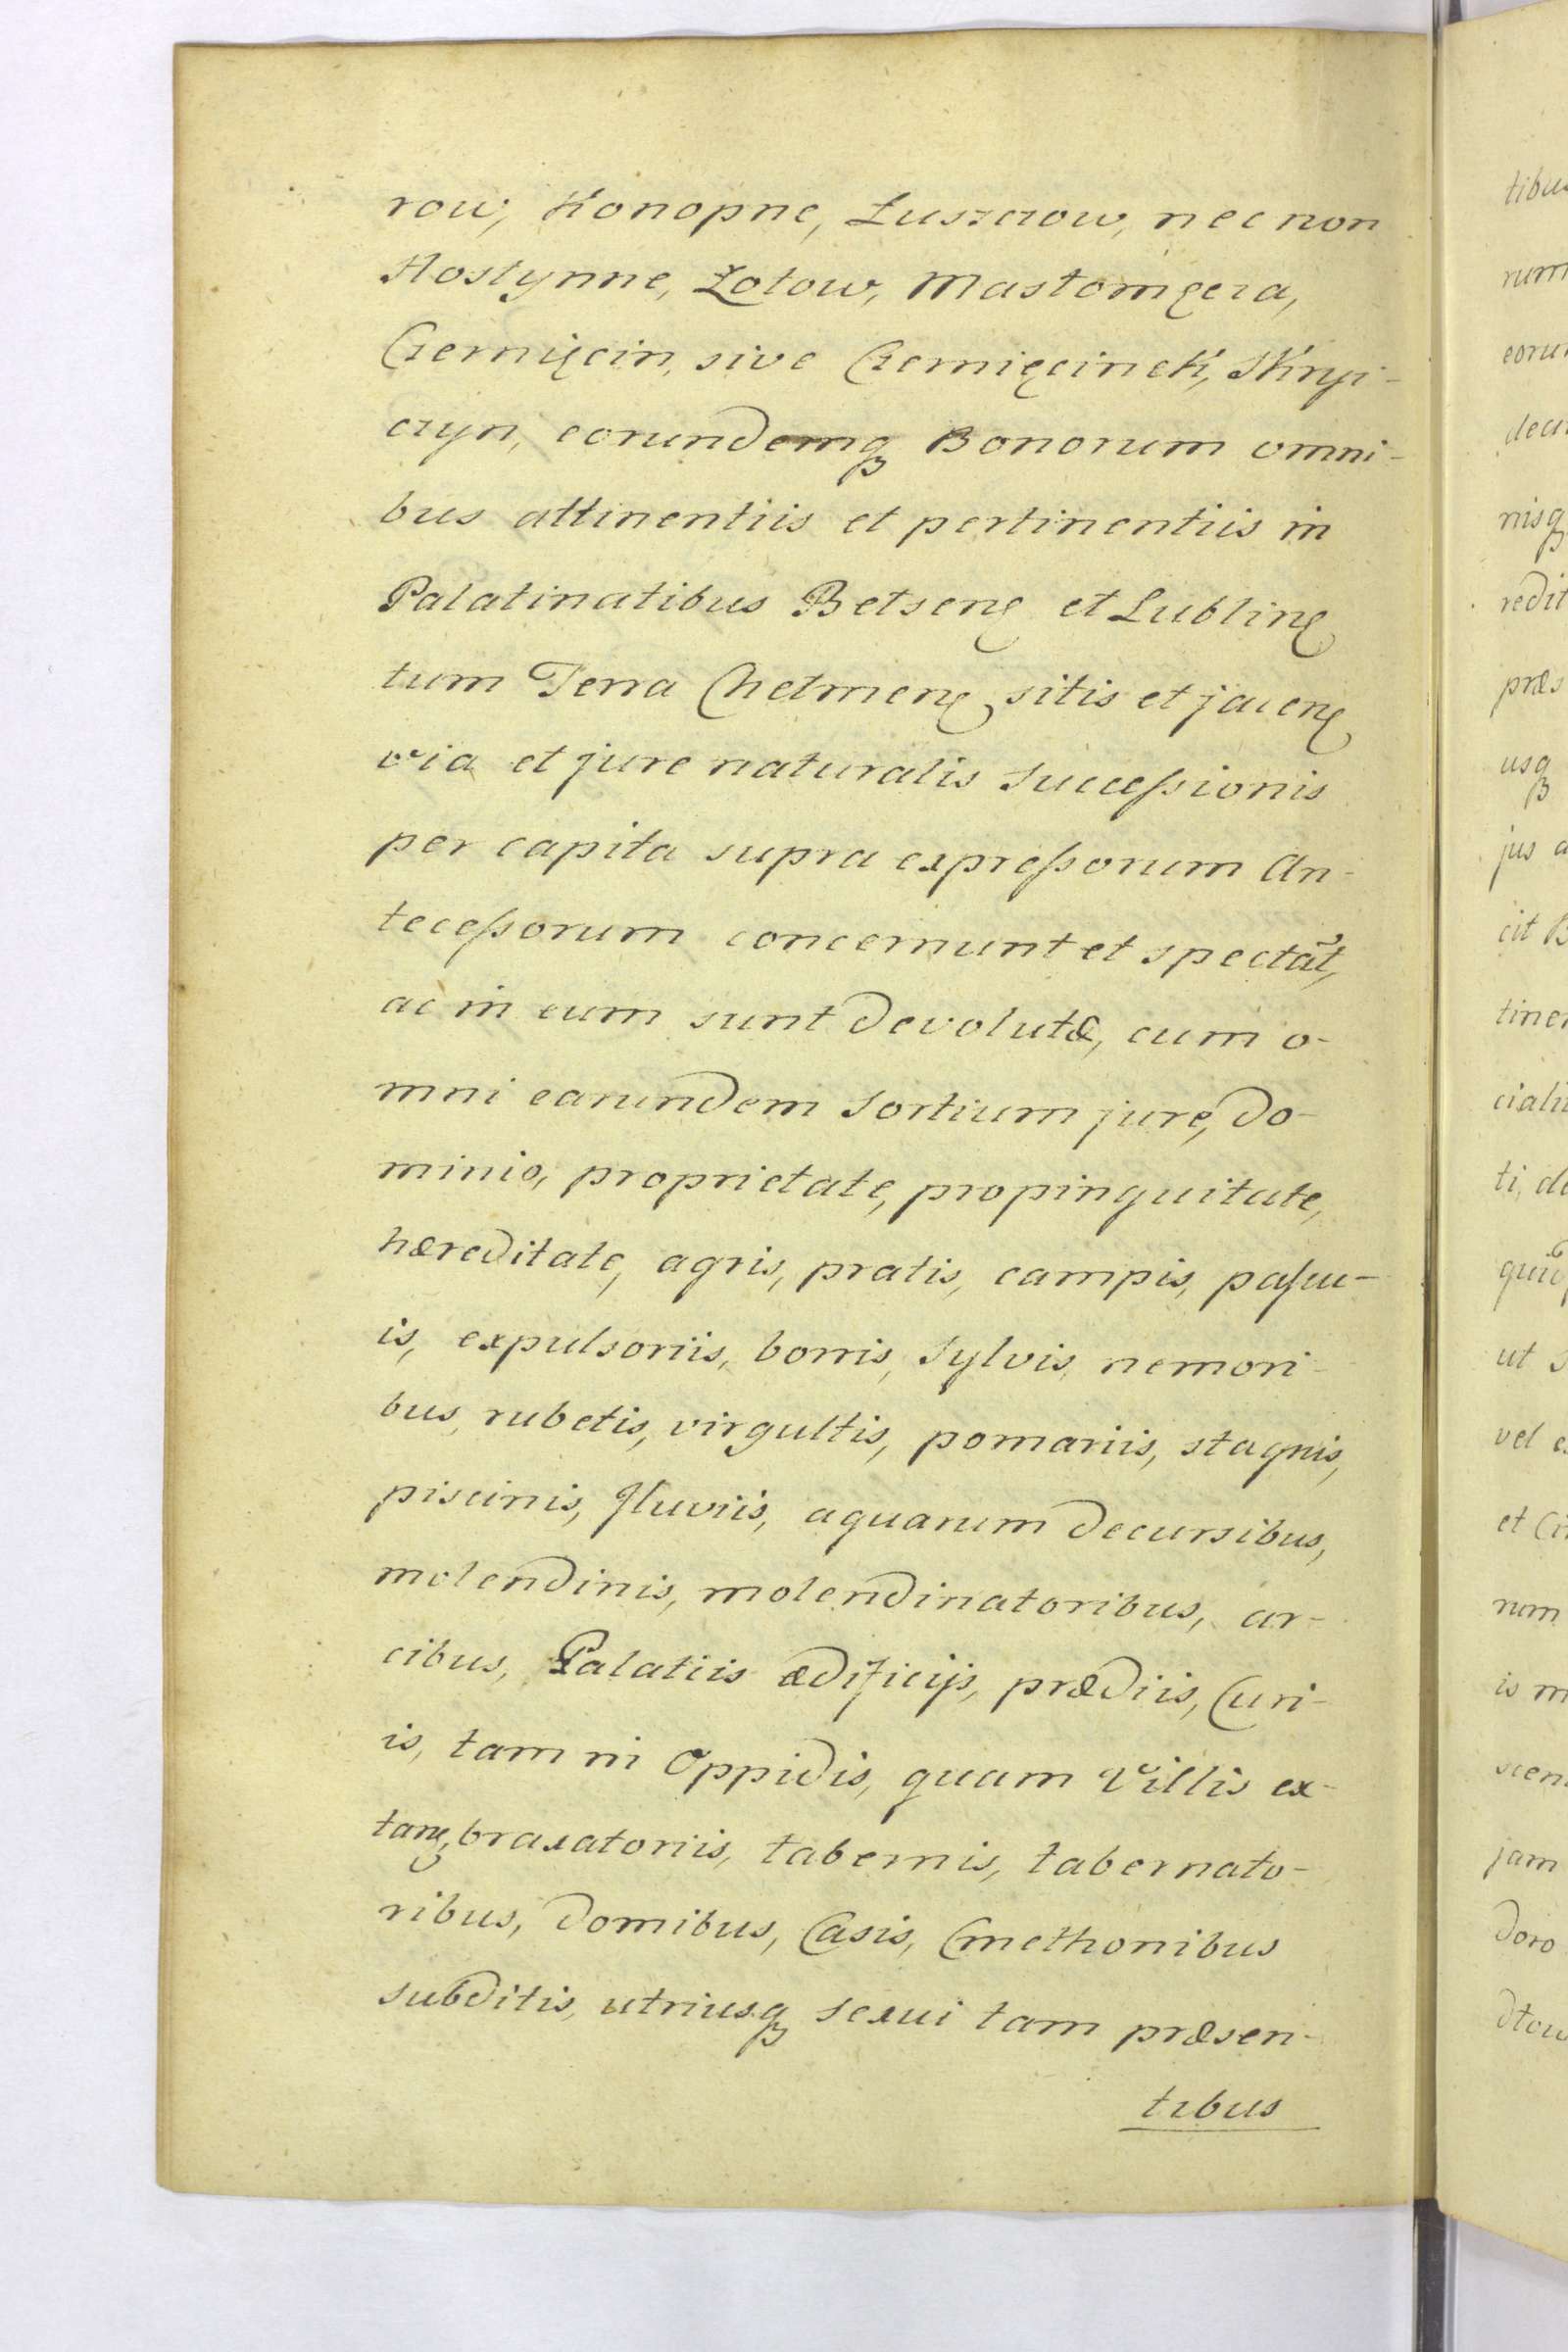 row, Konopne, Łuszczow, nec non
Hostynne, Zotow, Mastomęcza,
Czernięcin, sive Czernięcinek, Skryi-
czyn, eorundemq₃ Bonorum omni-
bus attinentiis et pertinentiis in
Palatinatibus Betsenę et Lublinę
tum Terra Chelmenę sitis et jacenę
via et jure naturalis Successionis
per capita supra expressorum An-
tecessorum concernunt et spectāt,
ac in eum sunt devolutæ, cum o-
mni earundem Sortium jure, do-
minio, proprietate, propinquitate,
hæreditate, agris, pratis, campis, pascu-
is, expulsoriis, borris, Sylvis, nemori-
bus, rubetis, virgultis, pomariis, stagnis,
piscinis, fluviis, aquarum decursibus,
molendinis, molendinatoribus, ar-
cibus, Palatiis ædificijs, prædiis, Curi-
is, tam in Oppidis, quam Villis ex-
tanę, braxatoriis, tabernis, tabernato-
ribus, domibus, Casis, Cmethonibus
subditis, utriusq₃ Sexui tam præsen-
tibus
tibus
rum
eoru
decu
nisq₃
redit
præs
usq₃
jus a
cit B
tiner
cialit
ti, de
ut S
vel e
et Ci
num
is m
scen
jam
doro